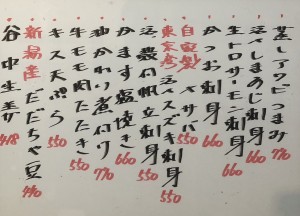 蒸しアワビつまみ 770
活〆しまあじ刺身 660
生トロサーモン刺身 660
かつお刺身 660
自家製 〆サバ 550
活〆スズキ刺身 550
活 殻付帆立刺身 660
かます塩焼き 660
油かれい煮付け 770
牛モモ肉たたき 550
キス天ぷら 550
新潟産 だだちゃ豆 440
谷中生姜